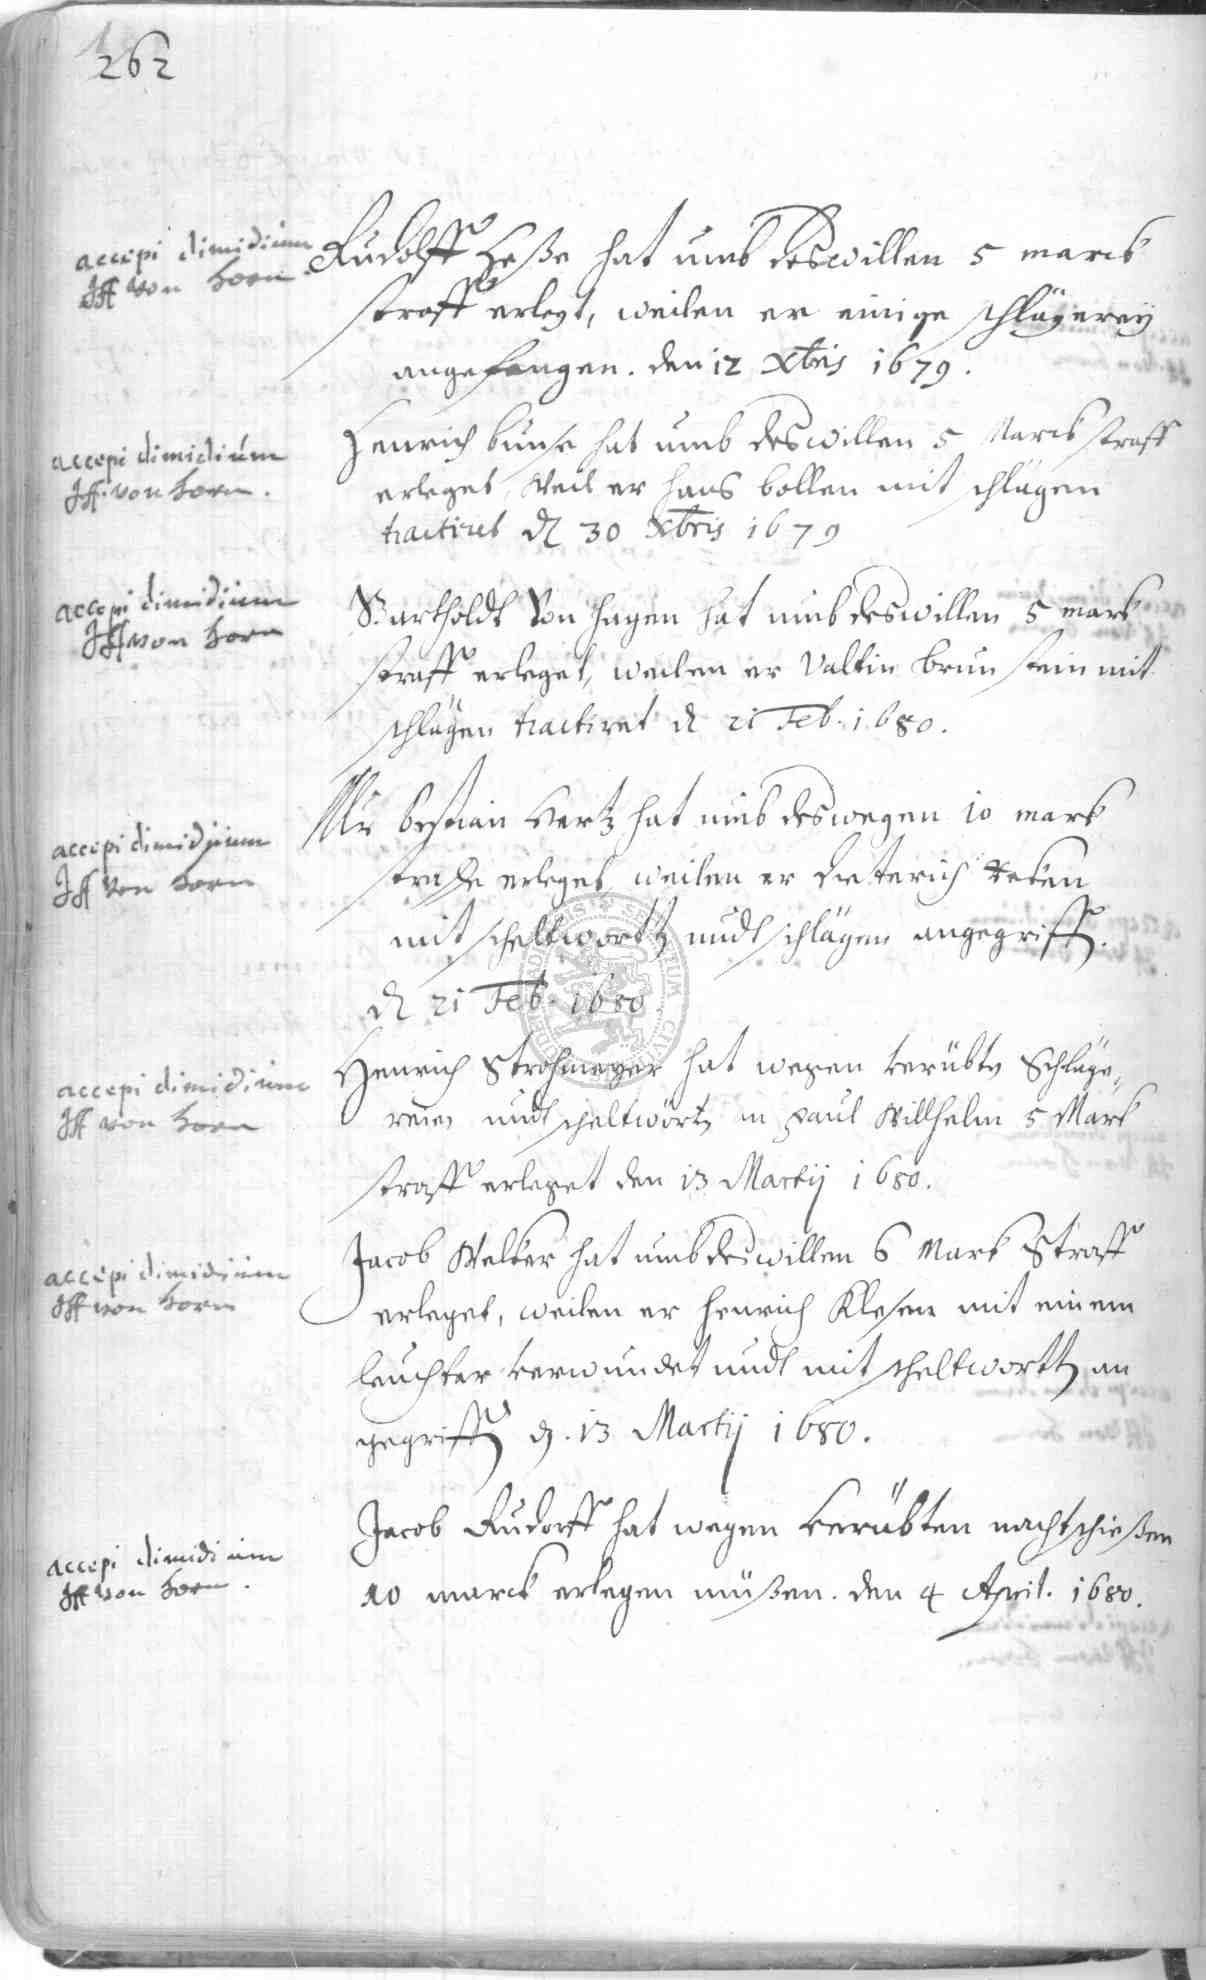 262
accepi dimidium
Jff von Horn
Rudolff Heße hat umb deswillen 5 marck
straff erlegt, weilen er einige schlägerey
angefangen. den 12 Xbris 1679.
accepi dimidium
Jff. von Horn.
Henrich bunse hat umb deswillen 5 Marck straff
erleget, Weil er hans bollen mit schlägen
tractiret d 30 Xbris 1679
accepi dimidium
Jff von Horn
Bartholdt Von hagen hat umb deswillen 5 mark
straff erleget, weilen er Valtin brunstein mit
schlägen tractiret d 21 Feb. 1680.
accepi dimidium
Jff Von Horn
Mr bestian Hertz hat umb deswegen 10 mark
straffe erleget weilen er Dieterich
mit scheltwortt undt schlägen angegriff.
d 21 Feb. 1680
accepi dimidium
Jff von Horn
Henrich Strohmeyer hat wegen verübte Schläge-
reien undt scheltwört an paul Willhelm 5 Mark
straff erleget den 13 Martij 1680.
accepi dimidium
Jff von Horn
Jacob Welker hat umb deswillen 6 Mark Straff
erleget, weilen er henrich Klesen mit einem
leuchter verwundet undt mit scheltwortt an
gegriff d. 13 Martij 1680.
accepi dimidium
Jff Von Horn.
Jacob Rudorff hat wegen verübten nachtschießen
10 marck erlegen müßen. den 4 April. 1680.